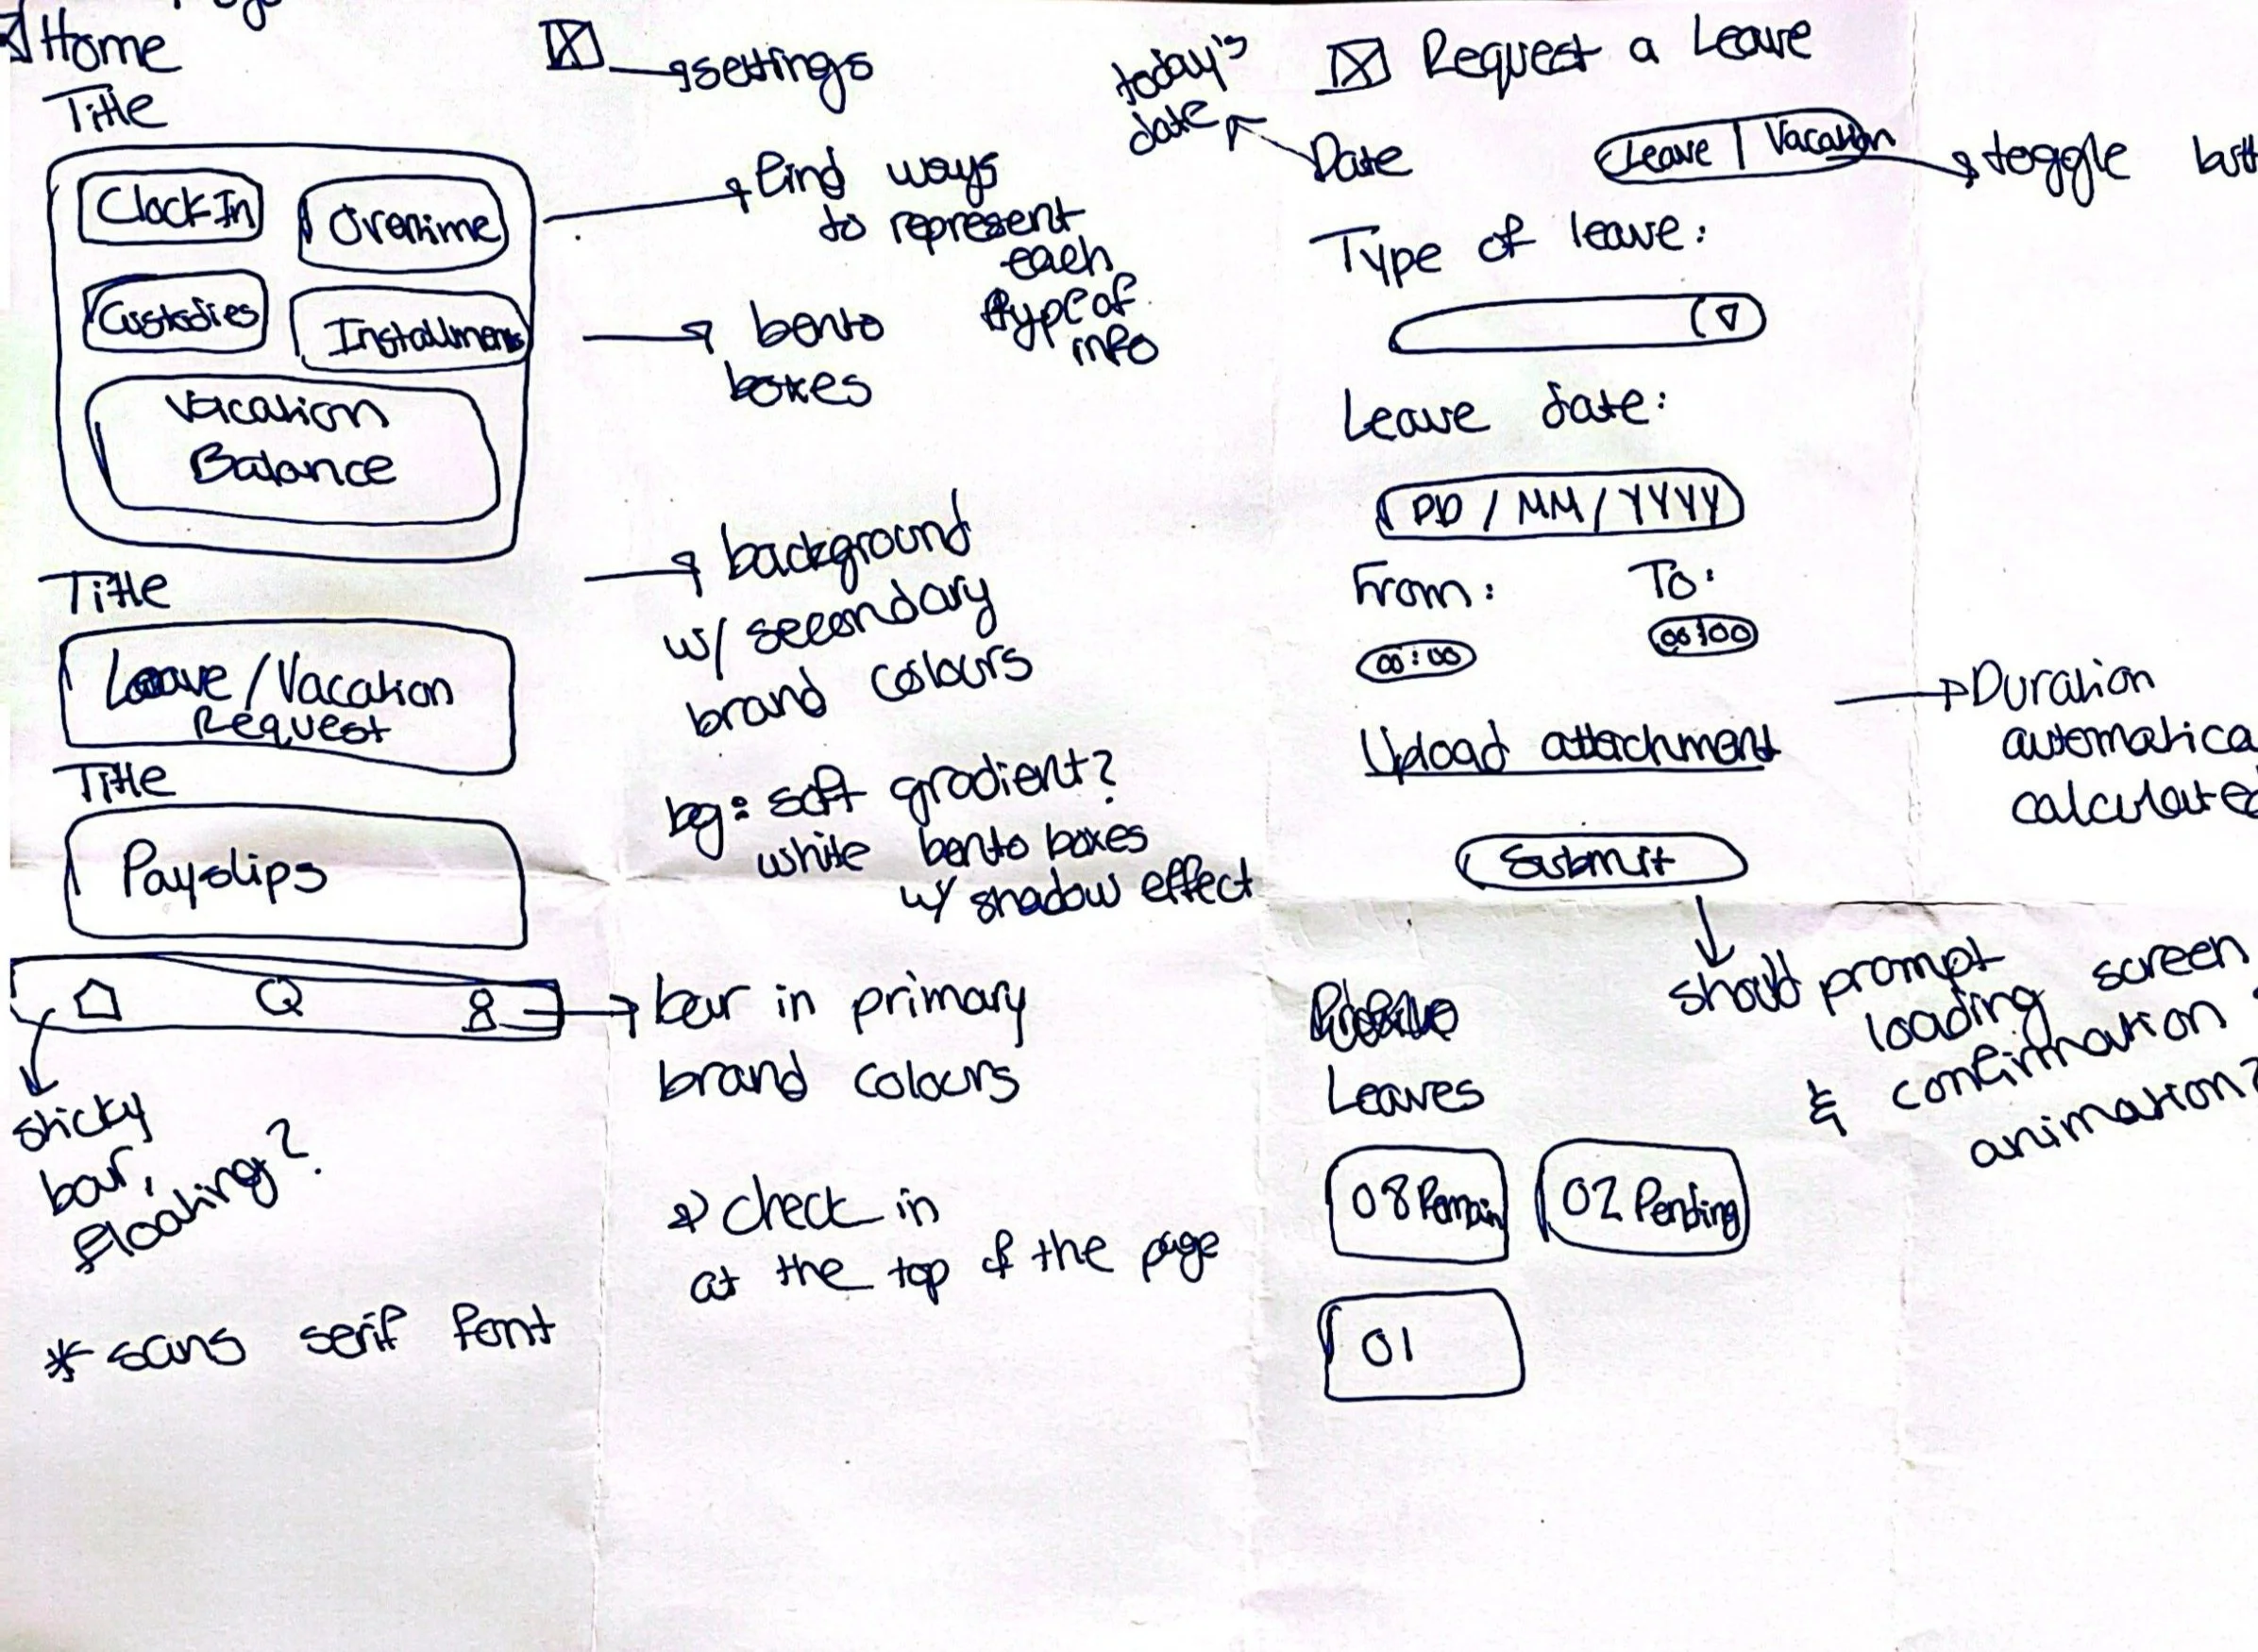 Home
settings
Title
Clock In
Overtime
Custodies
Installments
Vacation
Balance
find ways
to represent
each
type of
info
bento
boxes
Title
Leave / Vacation
Request
background
w/ secondary
brand colours
bg: soft gradient?
white bento boxes
w/ shadow effect
Title
Payslips
bar in primary
brand colours
sticky
bar,
floating?
check in
at the top of the page
* sans serif font
Request a Leave
today's
date
Date
Leave | Vacation
toggle
Type of leave:
Leave date:
DD / MM / YYYY
From: To:
00:00 00:00
Duration
Upload attachment
Submit
should prompt
loading screen
& confirmation
animation?
Leaves
08 Remain
02 Pending
01